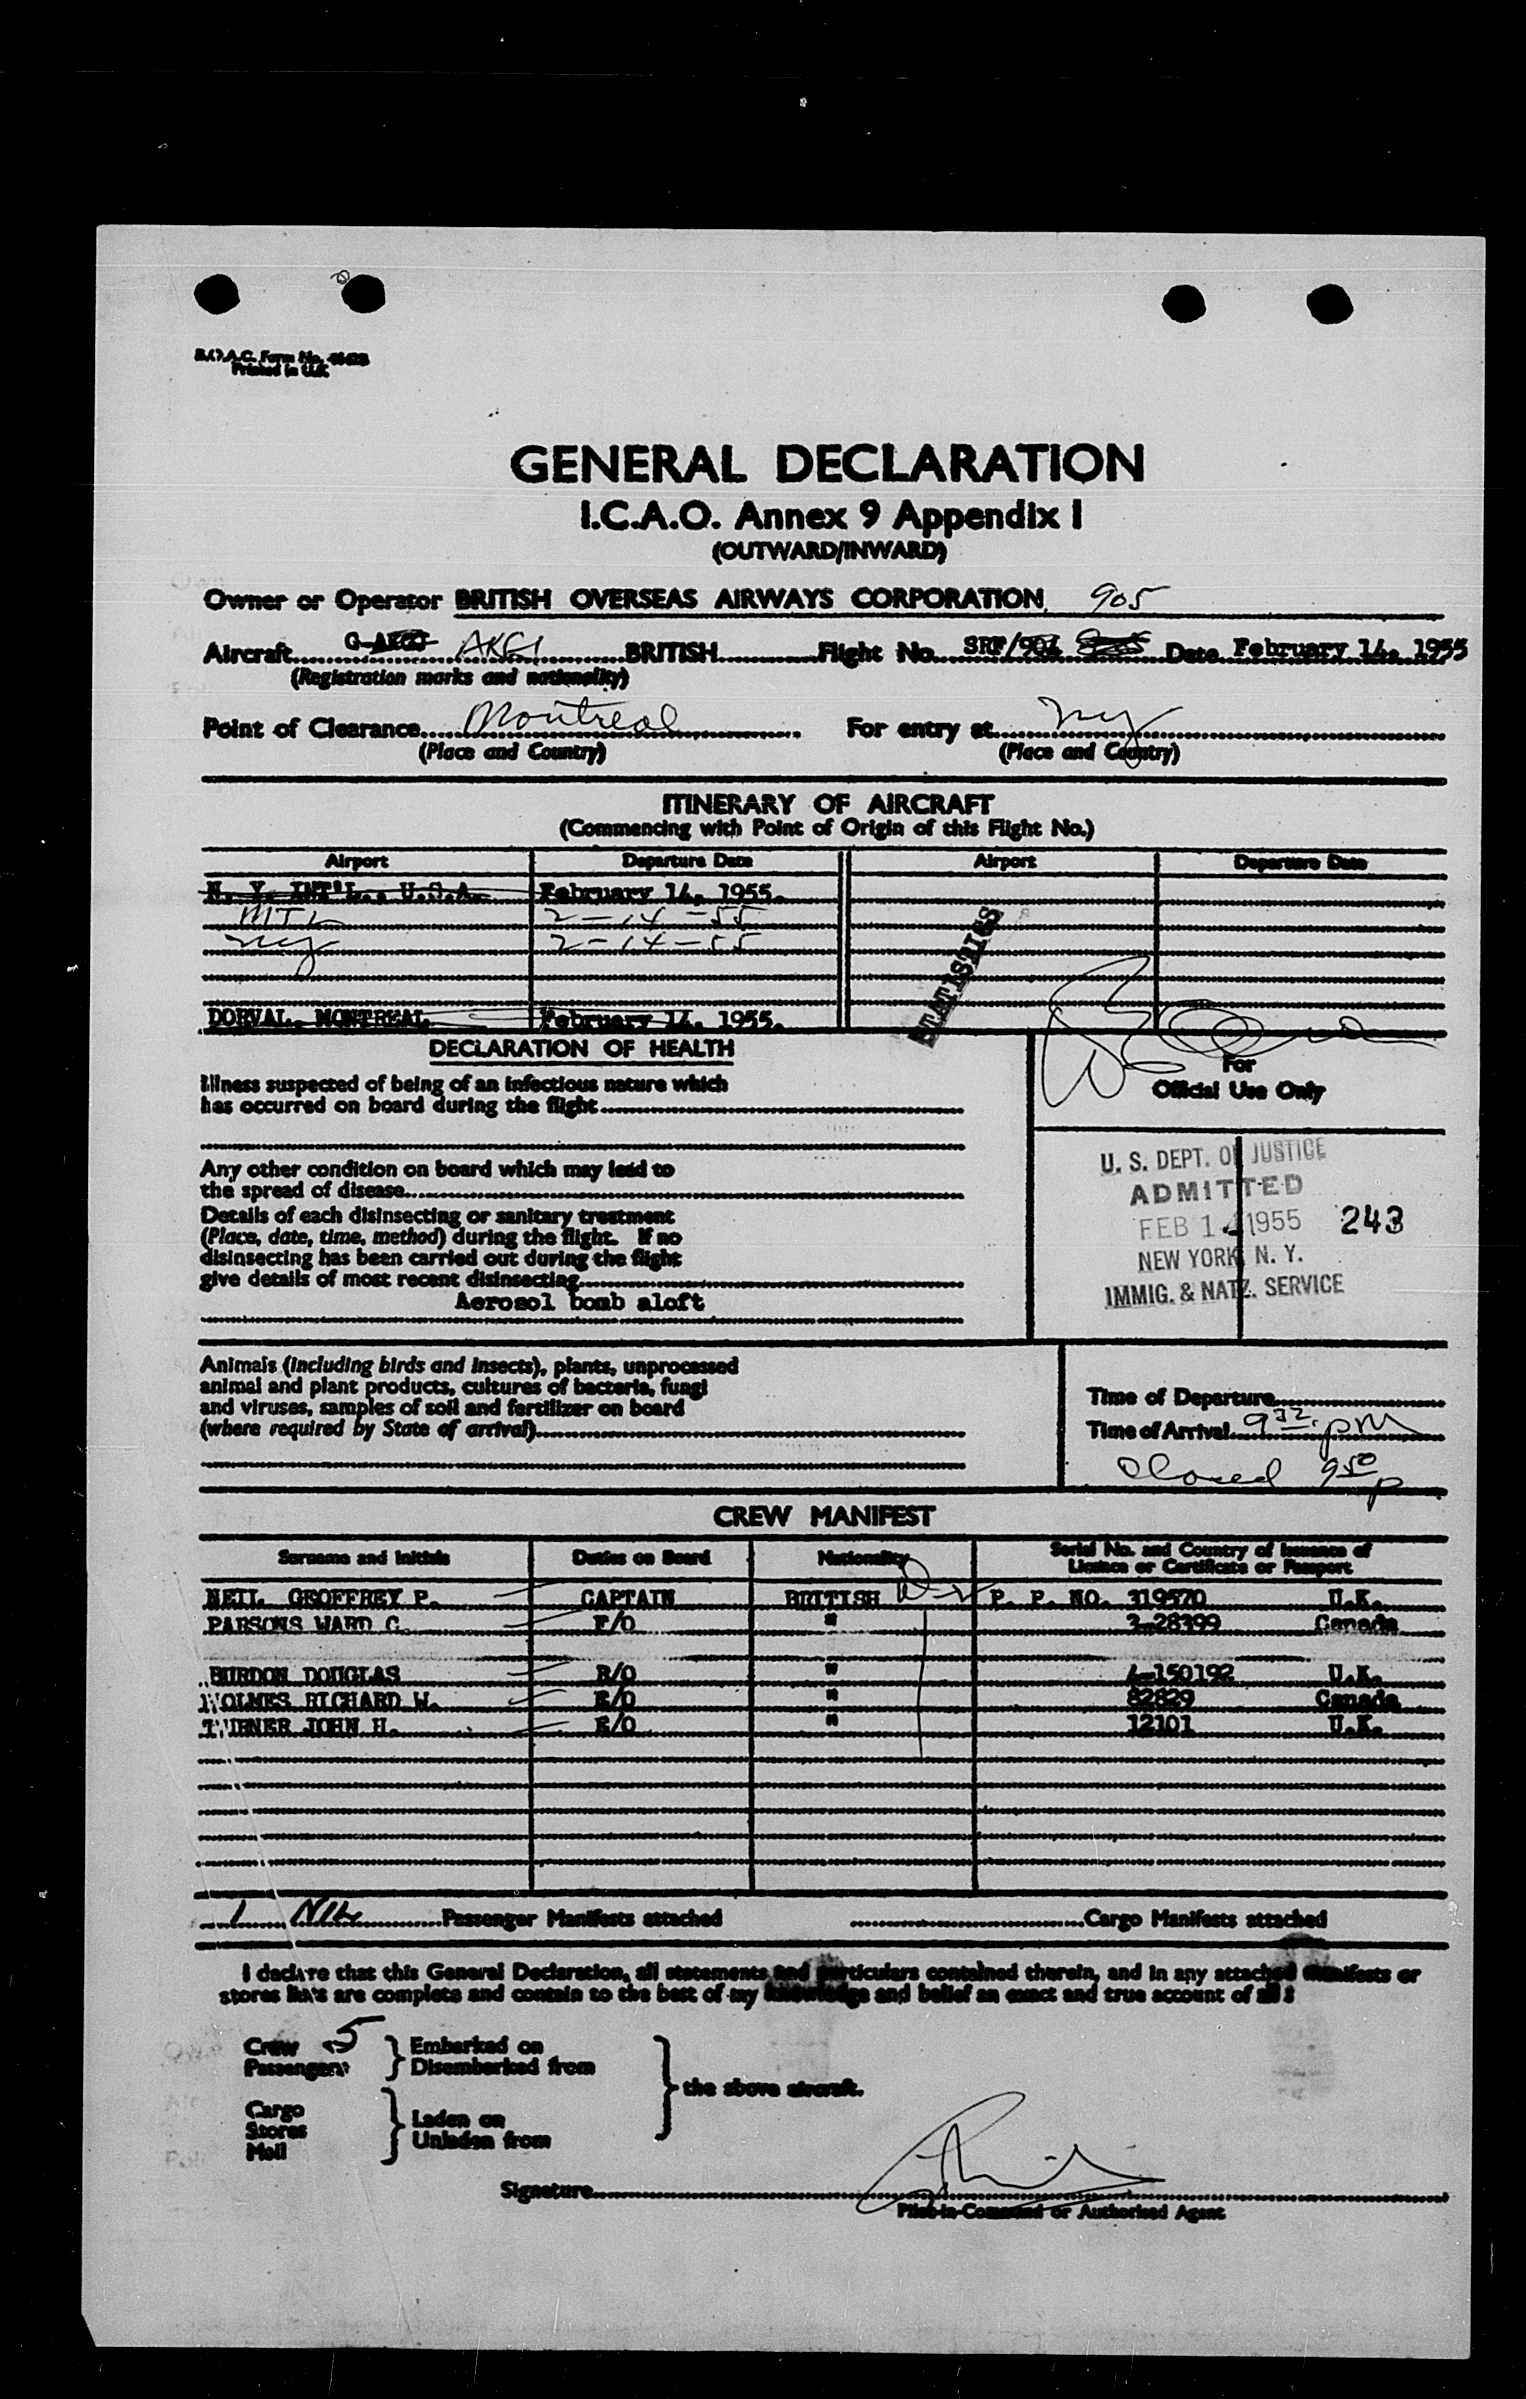 B.O.A.C. Form No.
Printed in U.K.
GENERAL DECLARATION
I.C.A.O. Annex 9 Appendix I
(OUTWARD/INWARD)
Owner or Operator BRITISH OVERSEAS AIRWAYS CORPORATION 905
Aircraft G- BRITISH Flight No. SRF/904 Date February 14, 1955
(Registration marks and nationality)
Point of Clearance Montreal For entry at ny
(Place and Country) (Place and Country)
ITINERARY OF AIRCRAFT
(Commencing with Point of Origin of this Flight No.)
Airport Departure Date Airport Departure Date
N. Y. INT'L., U.S.A. February 14, 1955.
MTL 2-14-55
ny 2-14-55
STATISTICS
DORVAL, MONTREAL February 14, 1955.
DECLARATION OF HEALTH
For
Official Use Only
Illness suspected of being of an infectious nature which
has occurred on board during the flight
Any other condition on board which may lead to
the spread of disease
Details of each disinsecting or sanitary treatment
(Place, date, time, method) during the flight. If no
disinsecting has been carried out during the flight
give details of most recent disinsecting
Aerosol bomb aloft
U. S. DEPT. OF JUSTICE
ADMITTED
FEB 14 1955 243
NEW YORK, N. Y.
IMMIG. & NATZ. SERVICE
Animals (including birds and insects), plants, unprocessed
animal and plant products, cultures of bacteria, fungi
and viruses, samples of soil and fertilizer on board
(where required by State of arrival)
Time of Departure
Time of Arrival 9 32 pm
Closed 9 50 p
CREW MANIFEST
Surname and Initials Duties on Board Nationality Serial No. and Country of Issuance of
Licence or Certificate or Passport
NEIL GEOFFREY P. CAPTAIN BRITISH P. P. NO. 319570 U.K.
PARSONS WARD C. F/O " 3-28399 Canada
BURDON DOUGLAS R/O " 150192 U.K.
HOLMES RICHARD W. E/O " 82829 Canada
TURNER JOHN H. E/O " 12101 U.K.
1 NIL Passenger Manifests attached Cargo Manifests attached
I declare that this General Declaration, all statements and particulars contained therein, and in any attached manifests or
stores lists are complete and contain to the best of my knowledge and belief an exact and true account of all :
Crew 5 Embarked on
Passengers Disembarked from
the above aircraft.
Cargo
Stores Laden on
Mail Unladen from
Signature
Pilot-in-Command or Authorised Agent